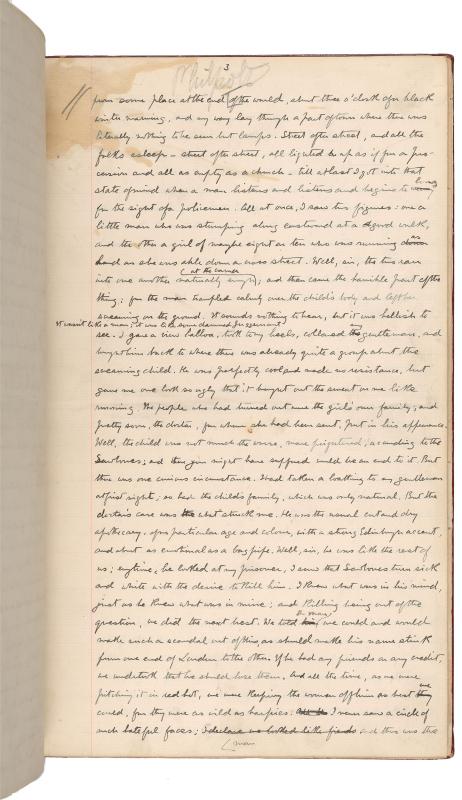 3
from some place at the end of the world, about three o'clock of a black
winter morning, and my way lay through a part of town where there was
literally nothing to be seen but lamps. Street after street, and all the
folks asleep – street after street, all lighted up as if for a pro-
cession and all as empty as a church – till at last I got into that
state of mind when a man listens and listens and begins to long
for the sight of a policeman. All at once, I saw two figures: one a
little man who was stumping along eastward at a good walk,
and the other a girl of maybe eight or ten who was running
hard as she was able down a cross street. Well, sir, the two ran
into one another naturally enough at the corner; and then came the horrible part of the
thing; for the man trampled calmly over the child's body and left her
screaming on the ground. It sounds nothing to hear, but it was hellish to
It wasn't like a man; it was like some damned Juggernaut.
see. I gave a view halloa, took to my heels, collared my gentleman, and
brought him back to where there was already quite a group about the
screaming child. He was perfectly cool and made no resistance, but
gave me one look so ugly that it brought out the sweat on me like
running. The people who had turned out were the girl's own family; and
pretty soon, the doctor, for whom she had been sent, put in his appearance.
Well, the child was not much the worse, more frightened, according to the
Sawbones; and there you might have supposed would be an end to it. But
there was one curious circumstance. I had taken a loathing to my gentleman
at first sight; so had the child's family, which was only natural. But the
doctor's case was what struck me. He was the usual cut and dry
apothecary, of no particular age and colour, with a strong Edinburgh accent,
and about as emotional as a bagpipe. Well, sir, he was like the rest of
us; everytime he looked at my prisoner, I saw that Sawbones turn sick
and white with the desire to kill him. I knew what was in his mind,
just as he knew what was in mine; and killing being out of the
question, we did the next best. We told the man we could and would
make such a scandal out of this, as should make his name stink
from one end of London to the other. If he had any friends or any credit,
we undertook that he should lose them. And all the time, as we were
pitching it in red hot, we were keeping the women off him as best we
could, for they were as wild as harpies. I never saw a circle of
such hateful faces; I declare we looked like fiends and there was the
man